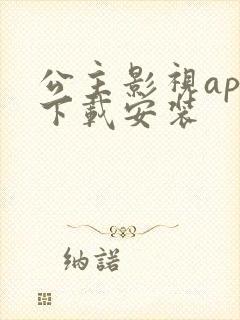 公主影視ap
下載安裝
纳諾